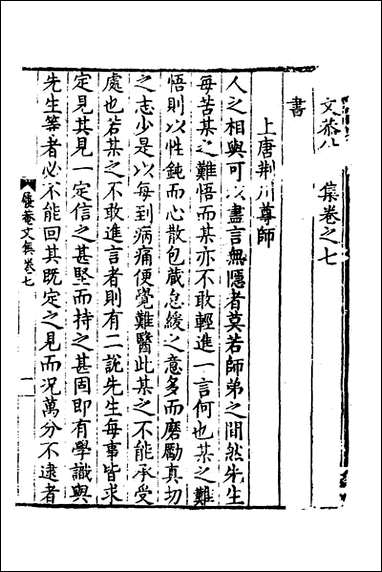 文恭公 集卷之七
書
上唐荆川尊師
人之相與可以盡言無隱者莫若師弟之間然先生
每苦某之難悟而某亦不敢輕進一言何也某之難
悟則以性鈍而心散包藏怠緩之意多而磨勵真切
之志少是以每到病痛便覺難醫此某之不能承受
處也若某之不敢進言者則有二說先生每事皆求
定見其見一定信之甚堅而持之甚固即有學識與
先生等者必不能回其既定之見而况萬分不逮者
菴文集卷七
一